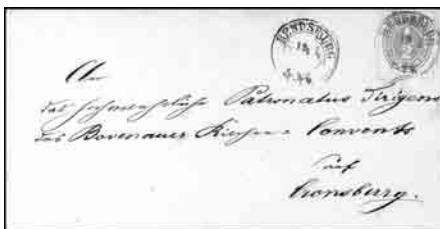 RENDSBURG
An
das hochwohllöbliche Patronatus Dirigens
des Bovenauer Kirchen Convents
auf
Cronsberg.